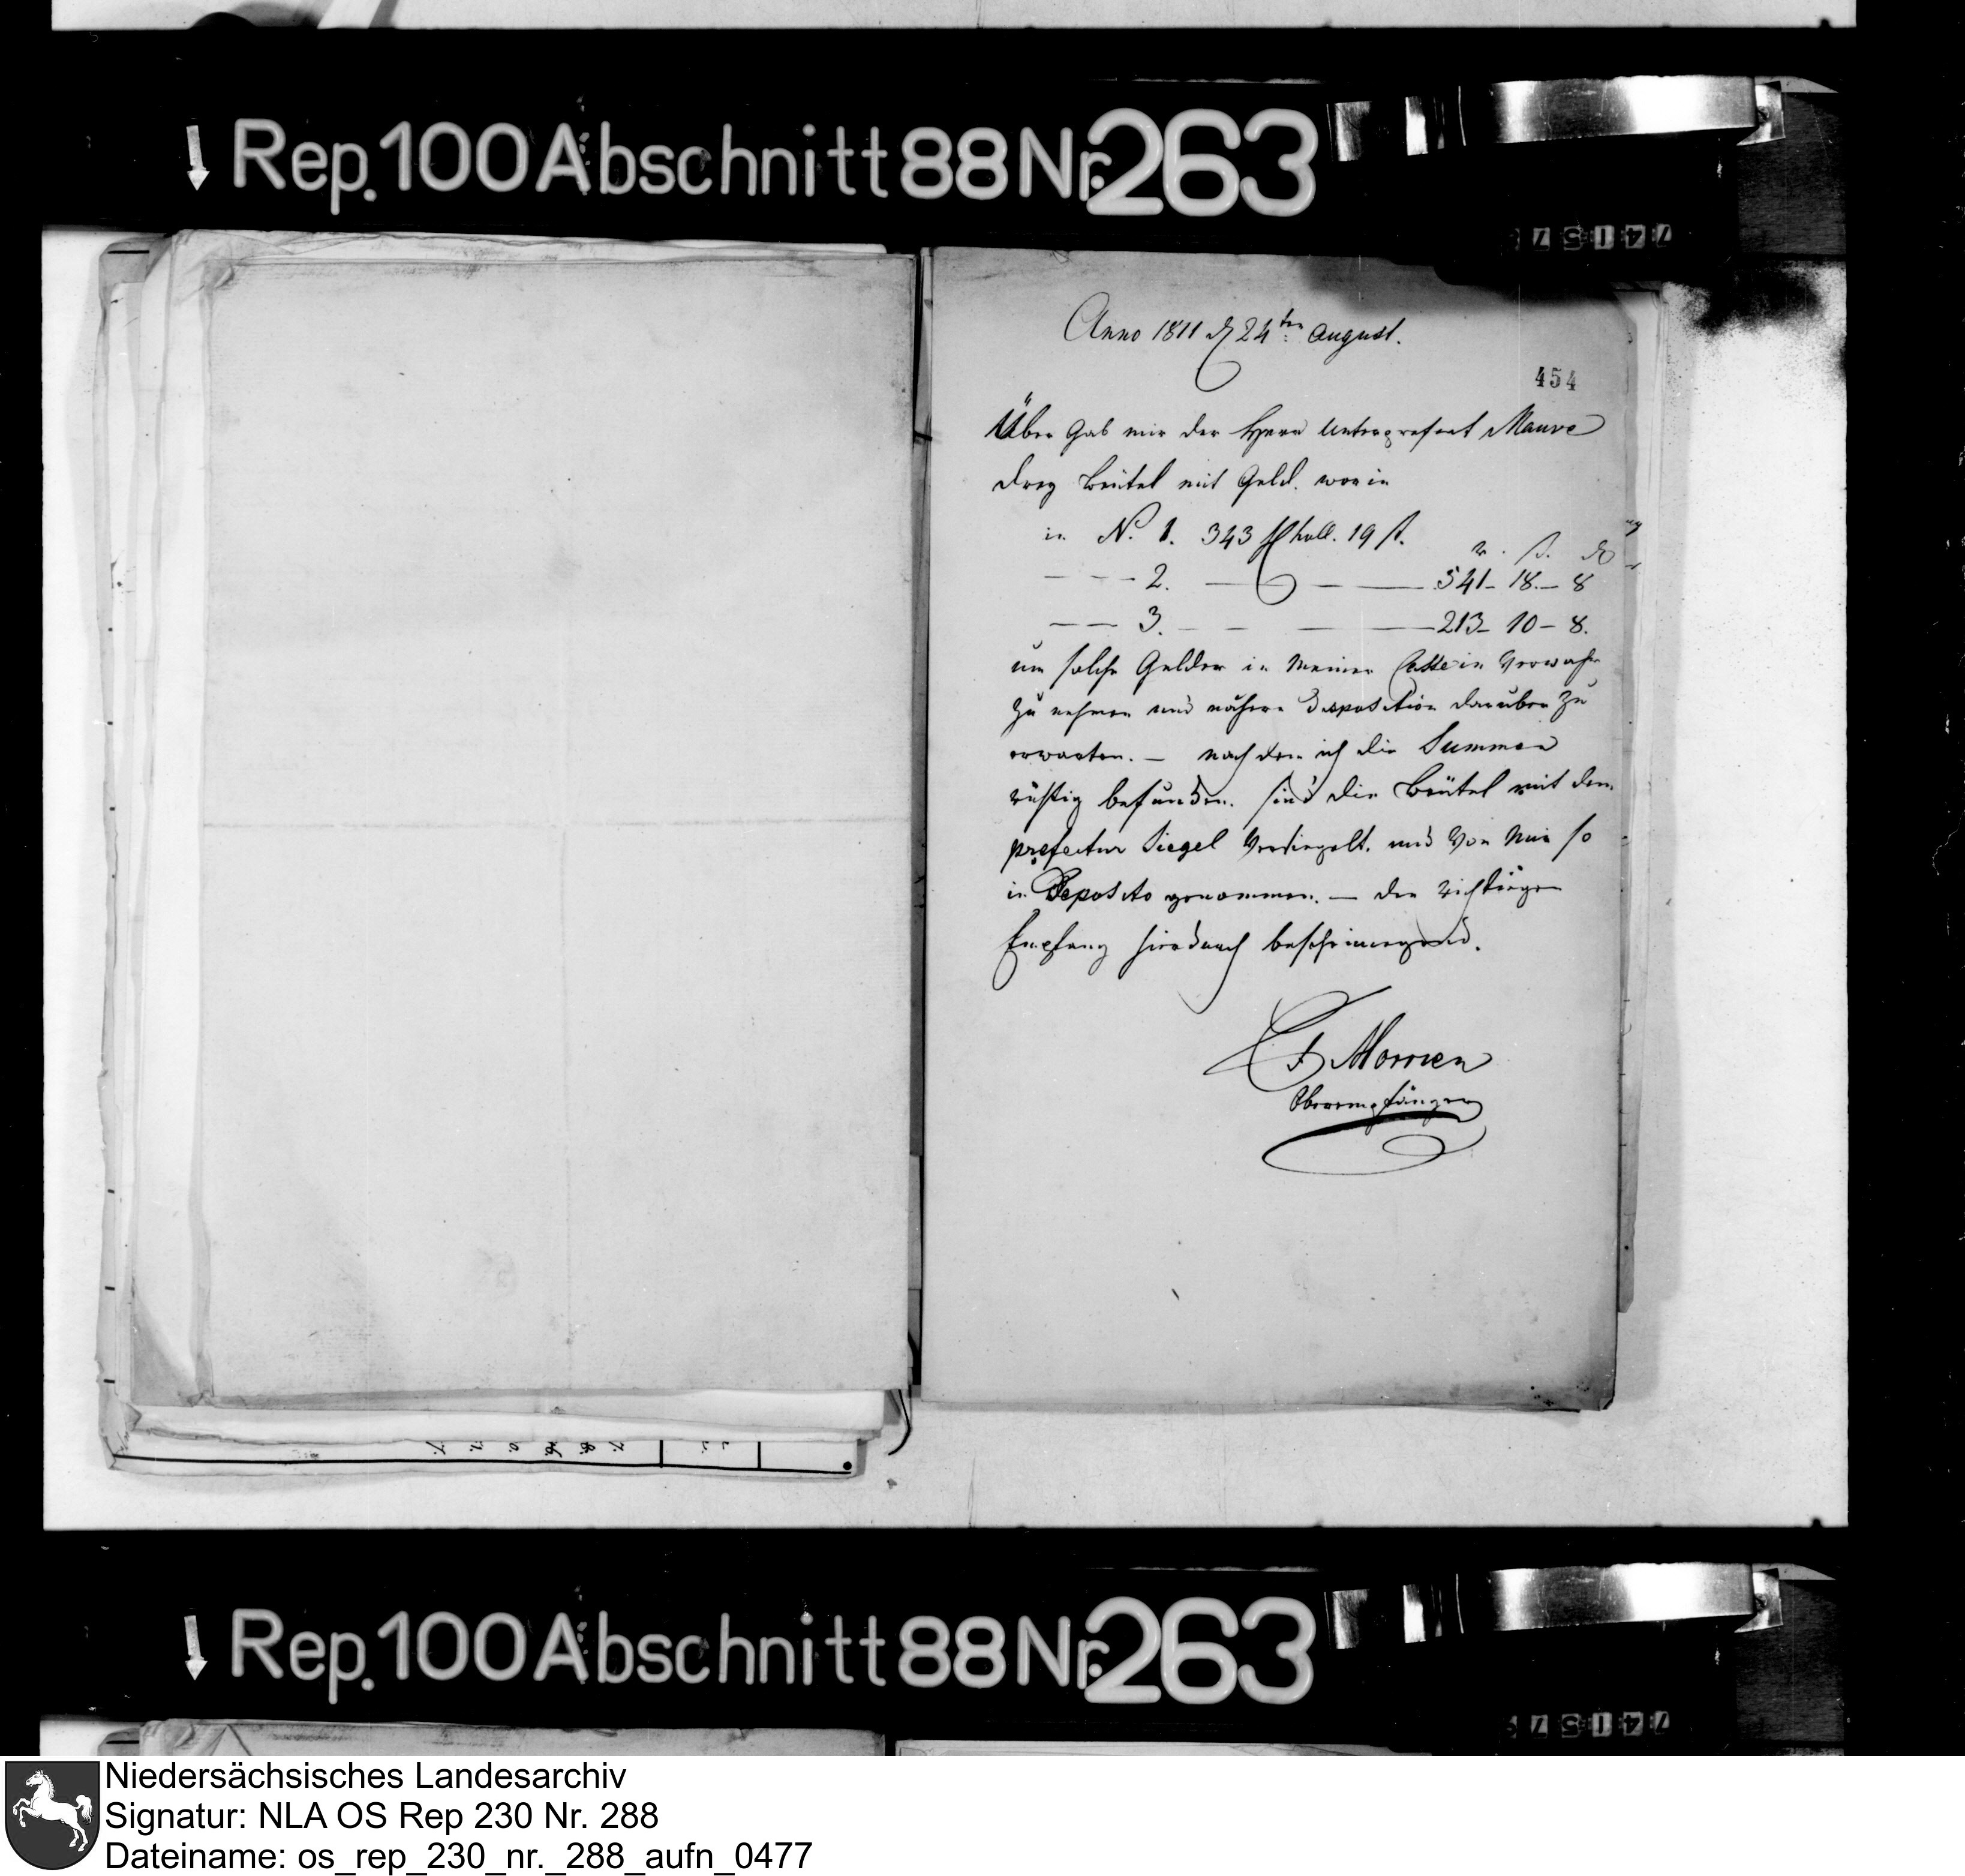 Rep. 100 Abschnitt 88 Nr. 263
Anno 1811 d 24ten August.
454
Über gab mir der Herr Unterprefect Mauve
drey Beütel mit Geld. worin
in No. 1. 343 f holl. 19 st.
r. st. d
— — 2. — — 541 - 18 - 8
— — 3. — — 213 - 10 - 8.
um solche Gelder in meiner Casse in Verwahr
zu nehmen und nähere Disposition darüber zu
erwarten. — nach dem ich die Summen
richtig befunden. sind die Beütel mit dem
prefectur Siegel versiegelt. und von mir so
in Deposito genommen. — den richtigen
Empfang hierdurch bescheinigend.
Morrien
Oberempfänger
Rep. 100 Abschnitt 88 Nr. 263
Niedersächsisches Landesarchiv
Signatur: NLA OS Rep 230 Nr. 288
Dateiname: os_rep_230_nr._288_aufn_0477